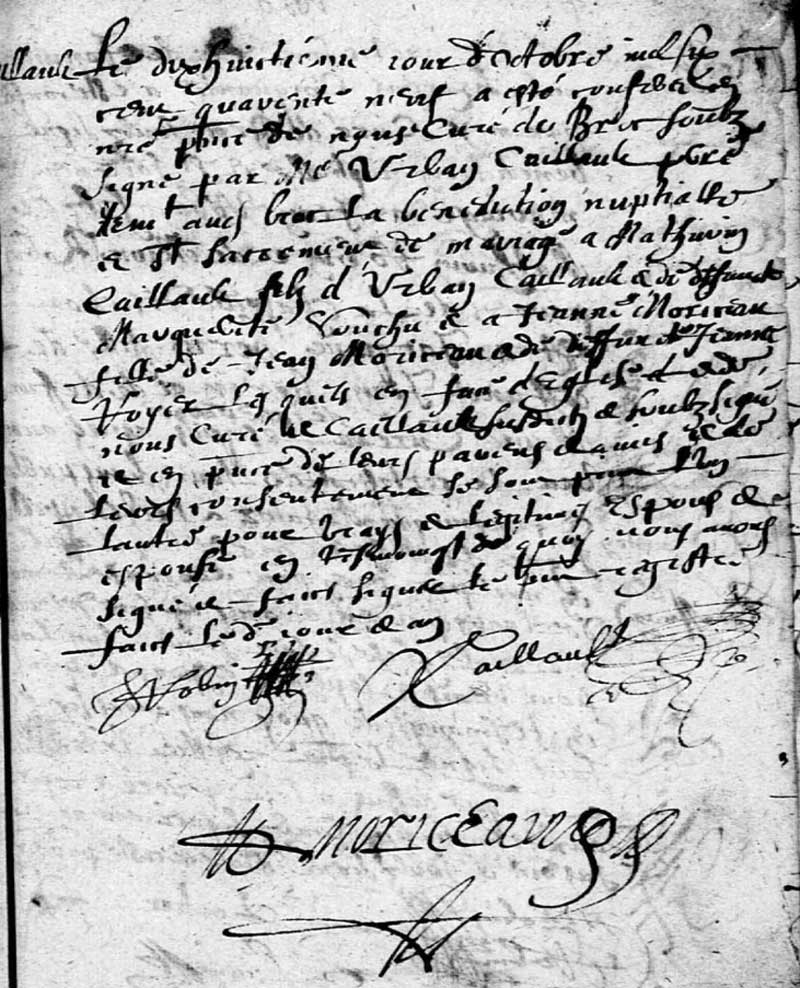 Le dixhuictieme iour d'octobre mil six
cent quarente neuf a esté conferé en
nre pnce de nous Curé de Broc soubz
signé par Me Urban Caillault pbre
demt aud broc la benediction nuptialle
et st sacrement de mariage a Mathurin
Caillault filz d'Urban Caillault & de deffuncte
Marguerite et a Jeanne Moriceau
fille de Jean Moriceau & de deffuncte Jeanne
Voyer lesquels en face d'Eglise et de
nous Curé & Caillault susdict & soubzsigné
et en pnce de leurs parens & amis et de
leurs consentement se sont pour l'un
lautre pour vrays & legitimes espoux &
espouse en tesmoing de quoy nous avons
signé et faict signer le pnt registre
faict led iour & an
Caillault
Moriceau